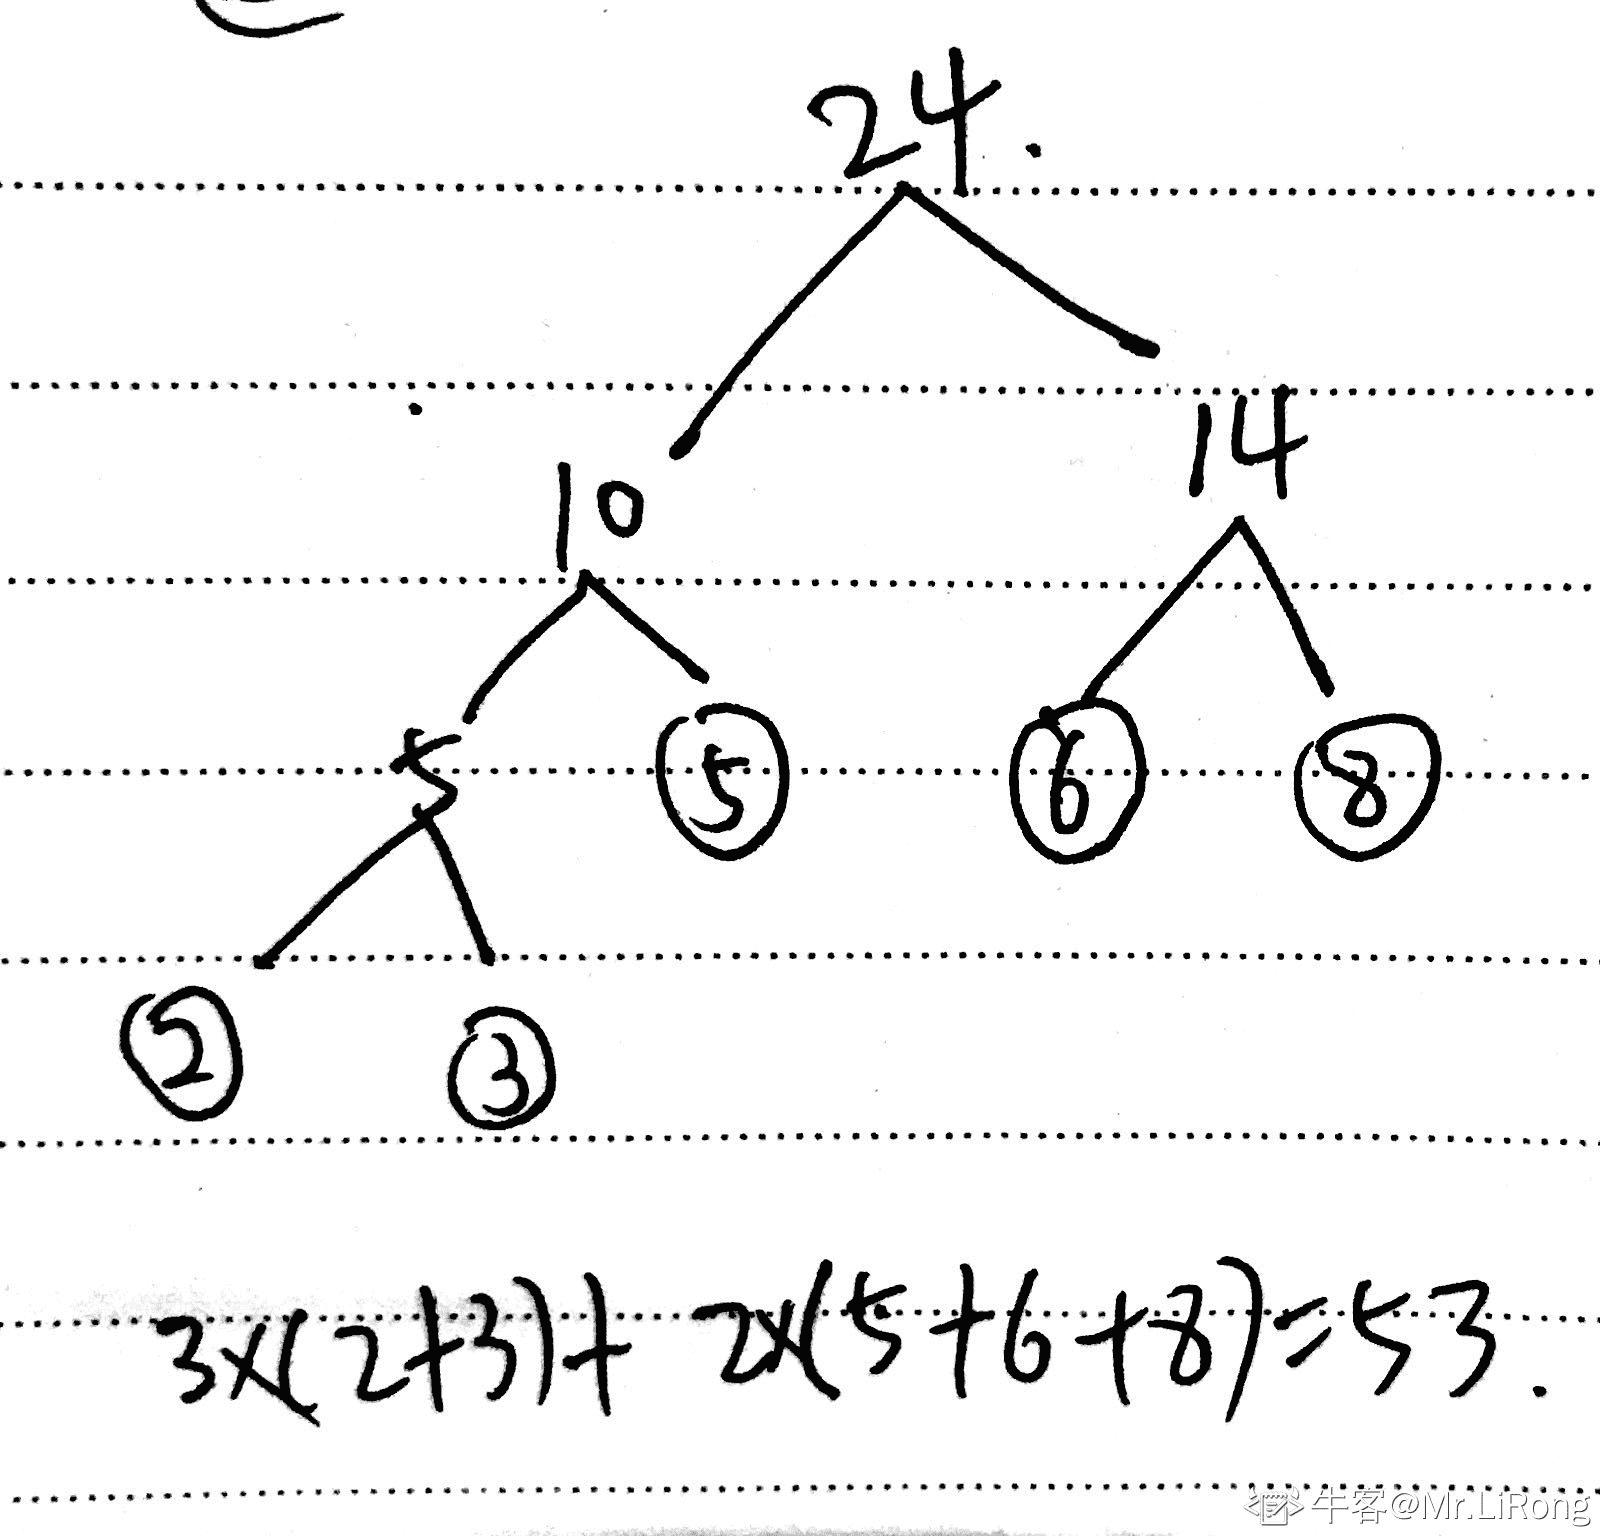 24.
10 14
5 ⑤ ⑥ ⑧
② ③
3×(2+3)+ 2×(5+6+8)=53.
牛客@Mr.LiRong